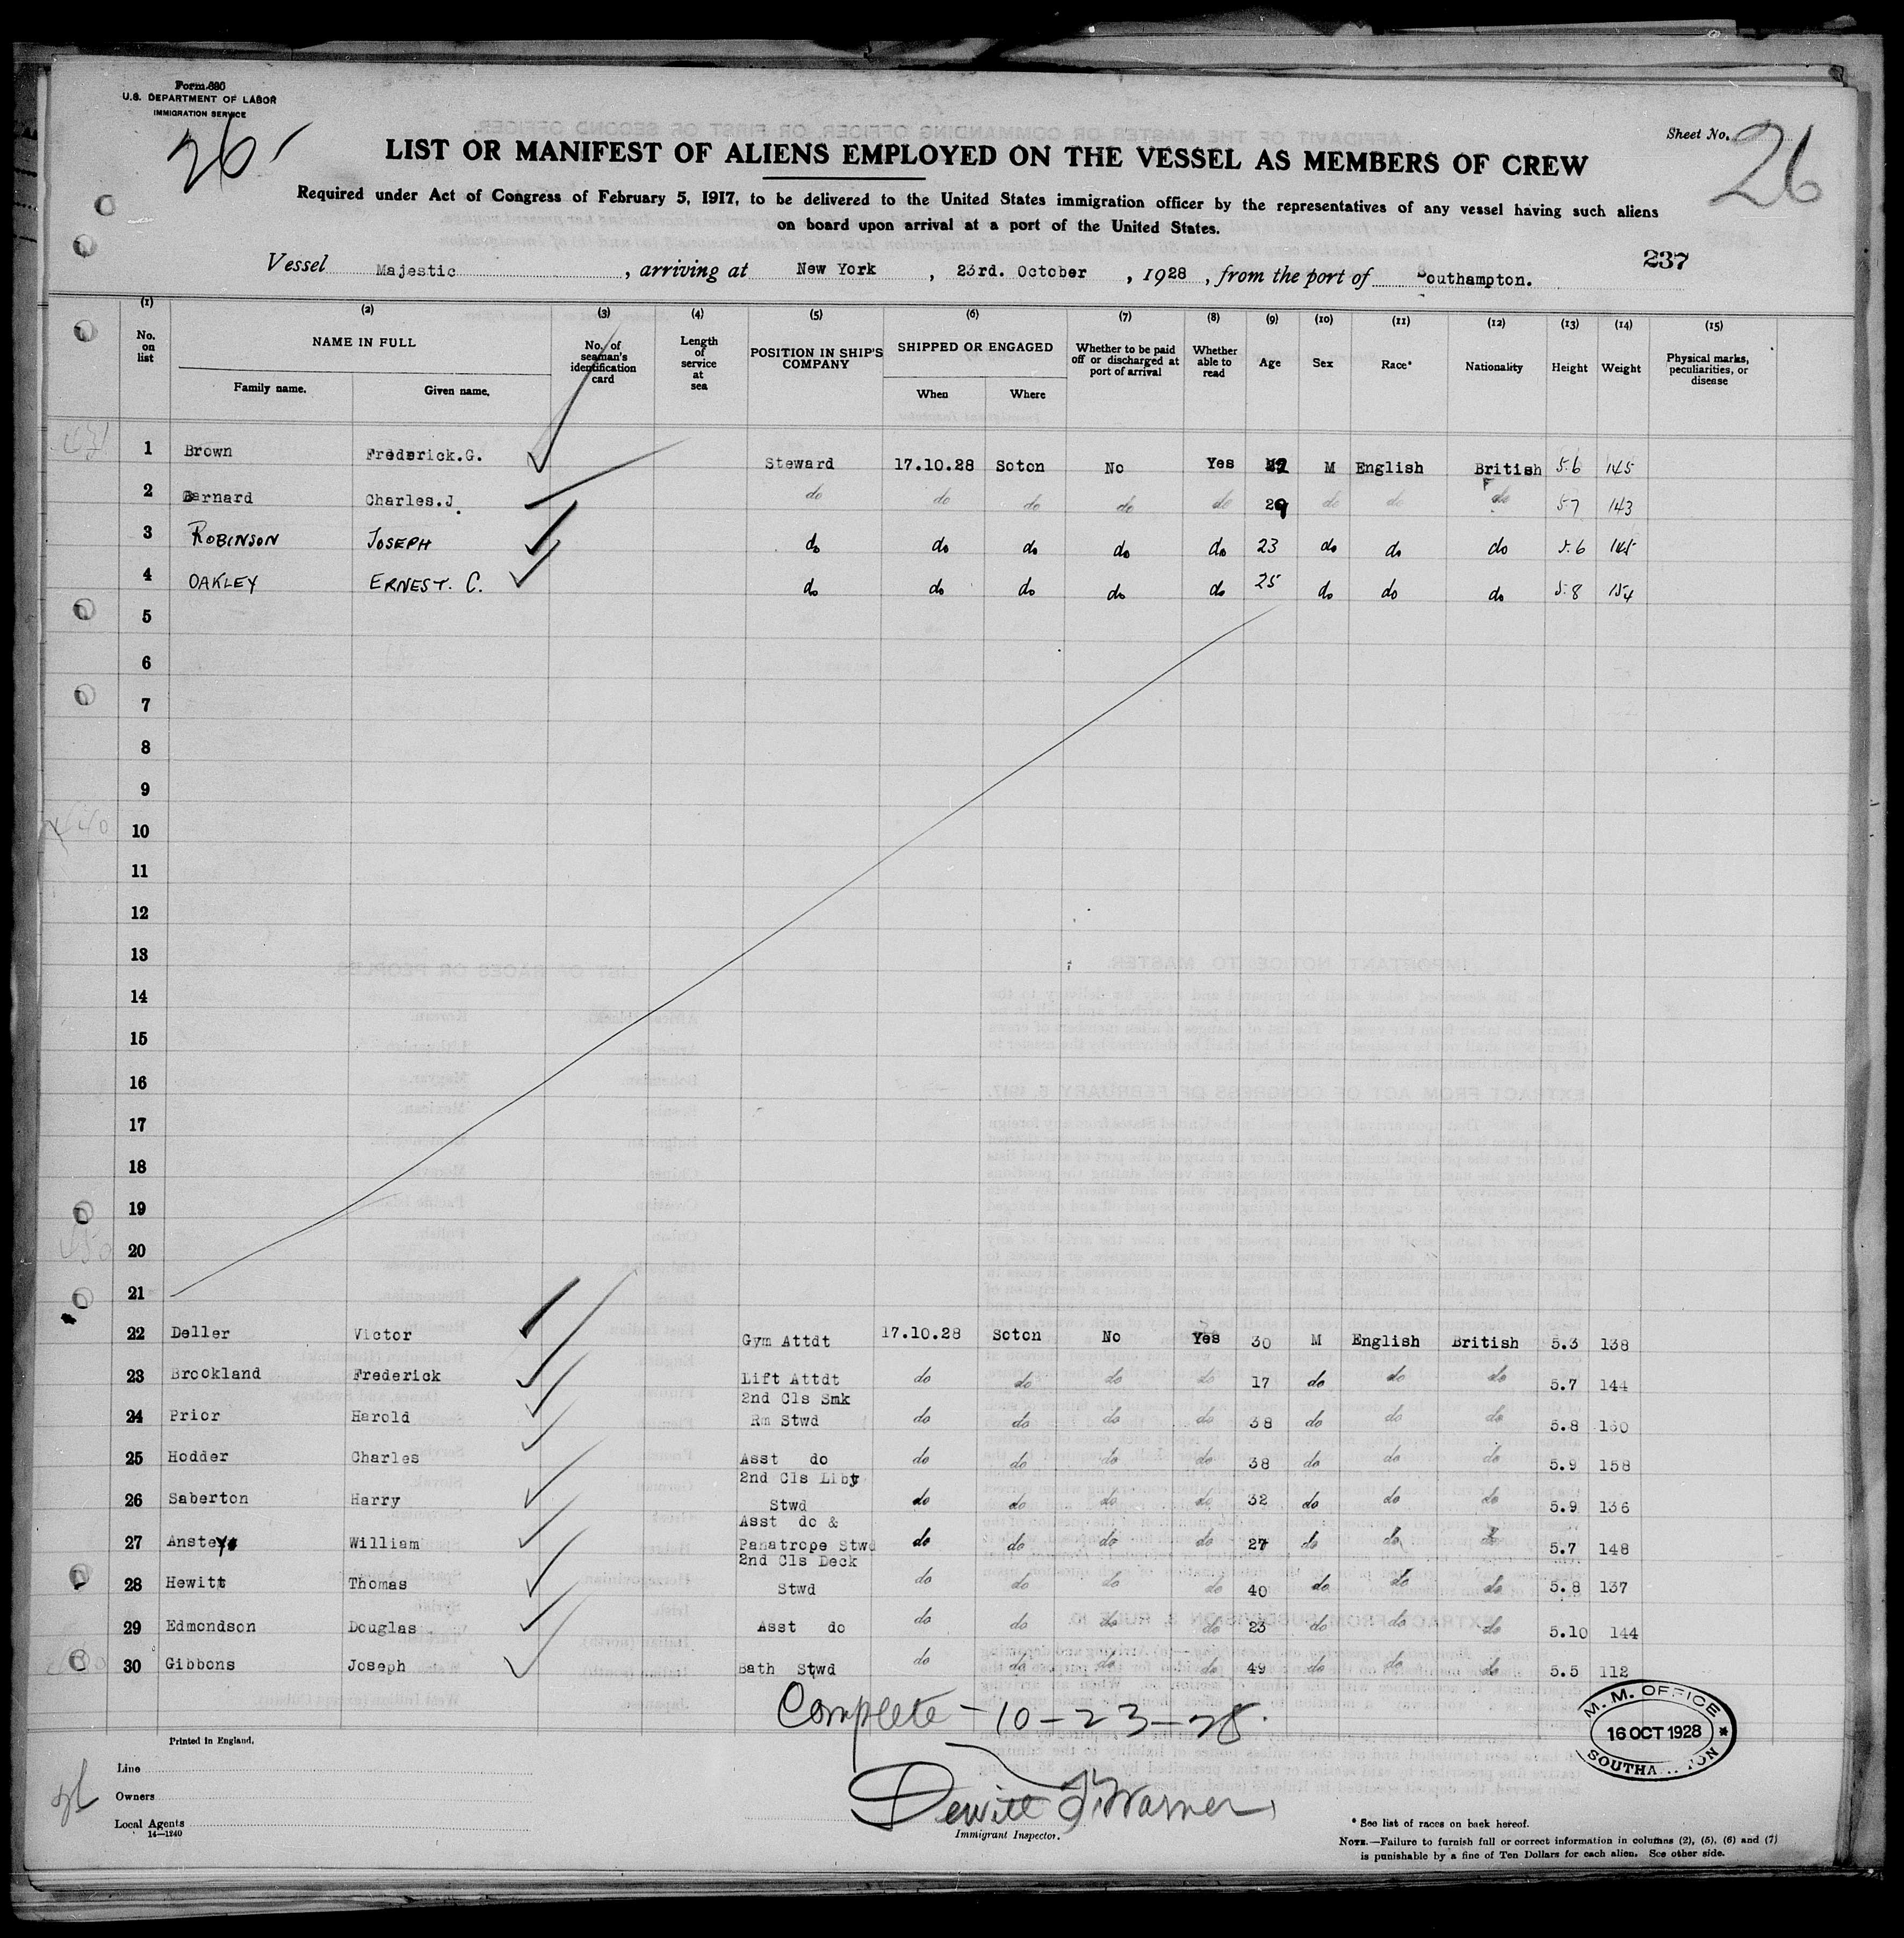 Form 680
U.S. DEPARTMENT OF LABOR
IMMIGRATION SERVICE
26
Sheet No. 26
LIST OR MANIFEST OF ALIENS EMPLOYED ON THE VESSEL AS MEMBERS OF CREW
Required under Act of Congress of February 5, 1917, to be delivered to the United States immigration officer by the representatives of any vessel having such aliens
on board upon arrival at a port of the United States.
237
Vessel Majestic, arriving at New York, 23rd. October, 1928, from the port of Southampton.
(1) (2) (3) (4) (5) (6) (7) (8) (9) (10) (11) (12) (13) (14) (15)
No. on list NAME IN FULL Family name. Given name. No. of seaman's identification card Length of service at sea POSITION IN SHIP'S COMPANY SHIPPED OR ENGAGED When Where Whether to be paid off or discharged at port of arrival Whether able to read Age Sex Race* Nationality Height Weight Physical marks, peculiarities, or disease
1 Brown Frederick.G. Steward 17.10.28 Soton No Yes M English British 5.6 145
2 Barnard Charles.J. do do do do do 29 do do do 5.7 143
3 ROBINSON JOSEPH do do do do do 23 do do do 5.6 145
4 OAKLEY ERNEST. C. do do do do do 25 do do do 5.8 154
5
6
7
8
9
10
11
12
13
14
15
16
17
18
19
20
21
22 Deller Victor Gym Attdt 17.10.28 Soton No Yes 30 M English British 5.3 138
23 Brookland Frederick Lift Attdt do do do do 17 do do do 5.7 144
2nd Cls Smk
24 Prior Harold Rm Stwd do do do do 38 do do do 5.8 160
25 Hodder Charles Asst do do do do do 38 do do do 5.9 158
2nd Cls Liby
26 Saberton Harry Stwd do do do do 32 do do do 5.9 136
Asst do &
27 Anstey William Panatrope Stwd do do do do 27 do do do 5.7 148
2nd Cls Deck
28 Hewitt Thomas Stwd do do do do 40 do do do 5.8 137
29 Edmondson Douglas Asst do do do do do 23 do do do 5.10 144
30 Gibbons Joseph Bath Stwd do do do do 49 do do do 5.5 112
Complete - 10-23-28.
M. M. OFFICE
16 OCT 1928
Printed in England.
Line
Owners
Local Agents
14—1240
Dewitt Warner
Immigrant Inspector.
* See list of races on back hereof.
NOTE.—Failure to furnish full or correct information in columns (2), (5), (6) and (7)
is punishable by a fine of Ten Dollars for each alien. See other side.